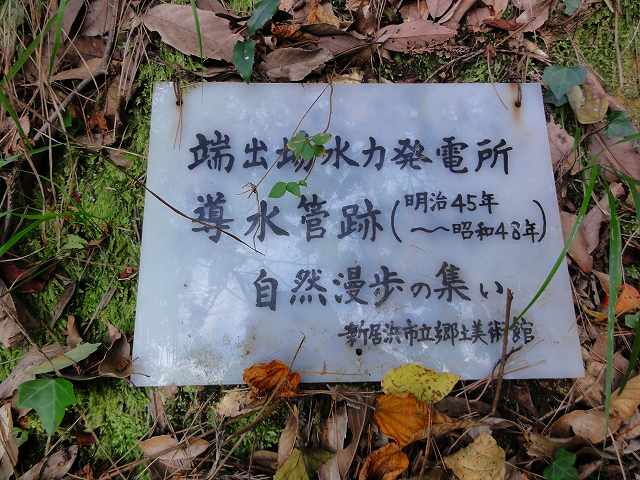 端出場水力発電所
導水管跡(明治45年
〜昭和48年)
自然漫歩の集い
新居浜市立郷土美術館